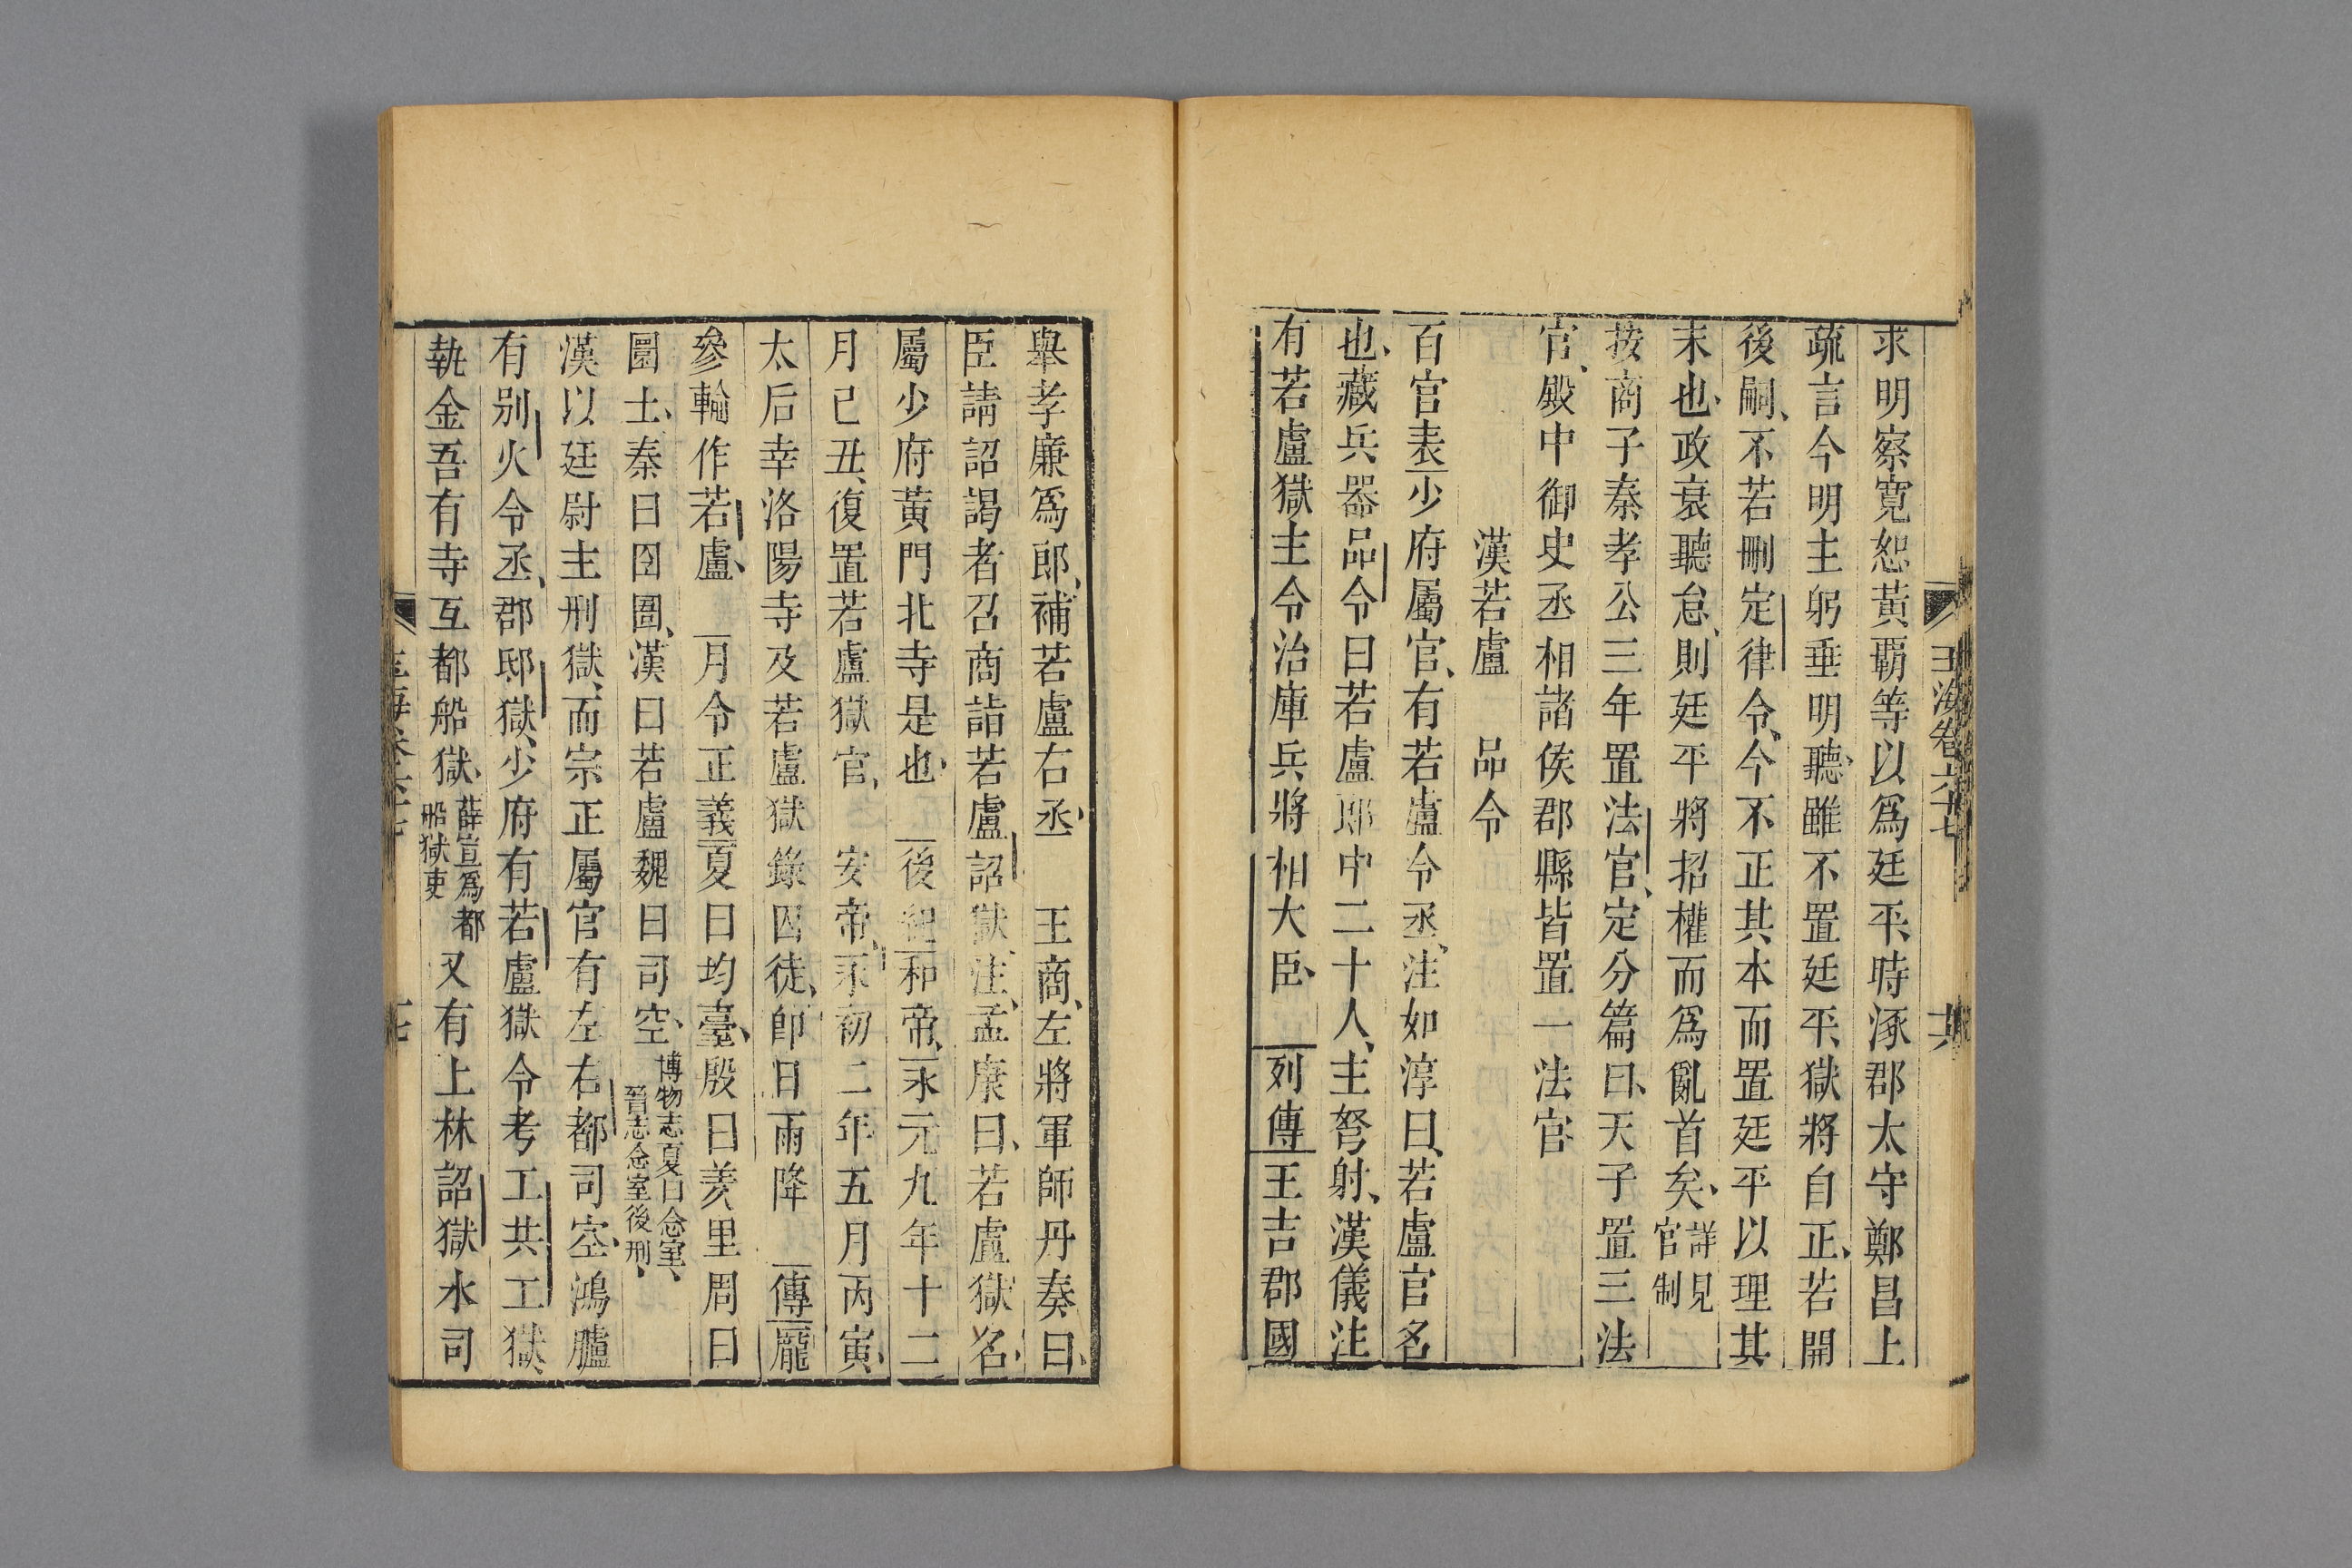 玉海卷六十七
求明察寬恕黃覇等以爲廷平時涿郡太守鄭昌上
疏言今明主躬垂明聽雖不置廷平獄將自正若開
後嗣不若刪定律令今不正其本而置廷平以理其
末也政衰聽怠則廷平將招權而爲亂首矣詳見官制
按商子秦孝公三年置法官定分篇曰天子置三法
官殿中御史丞相諸侯郡縣皆置一法官
漢若盧 品令
百官表少府屬官有若盧令丞注如淳曰若盧官名
也藏兵器品令曰若盧郎中二十人主弩射漢儀注
有若盧獄主令治庫兵將相大臣 列傳王吉郡國
舉孝廉爲郎補若盧右丞 王商左將軍師丹奏曰
臣請詔謁者召商詣若盧詔獄注孟康曰若盧獄名
屬少府黃門北寺是也 後紀和帝永元九年十二
月己丑復置若盧獄官 安帝永初二年五月丙寅
太后幸洛陽寺及若盧獄錄囚徒卽日雨降 傳龐
參輸作若盧 月令正義夏曰均臺殷曰羑里周曰
圜土秦曰囹圄漢曰若盧魏曰司空博物志夏曰念室晉志念室後刑
漢以廷尉主刑獄而宗正屬官有左右都司空鴻臚
有別火令丞郡邸獄少府有若盧獄令考工共工獄
執金吾有寺互都船獄薛宣爲都船獄吏又有上林詔獄水司